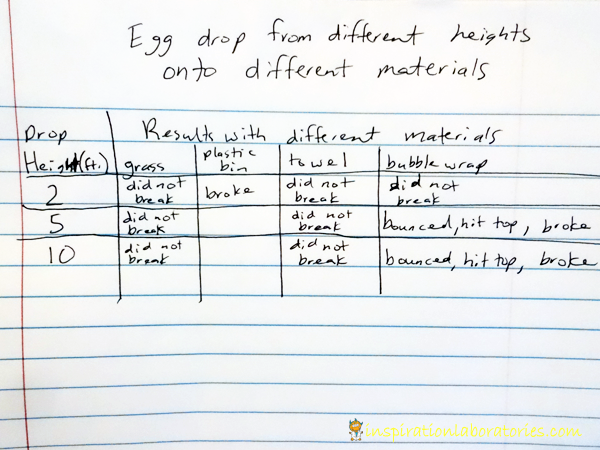 Egg drop from different heights
onto different materials
Drop Results with different materials
Height(ft.) grass plastic bin towel bubble wrap
2 did not break broke did not break did not break
5 did not break did not break bounced, hit top, broke
10 did not break did not break bounced, hit top, broke
inspirationlaboratories.com